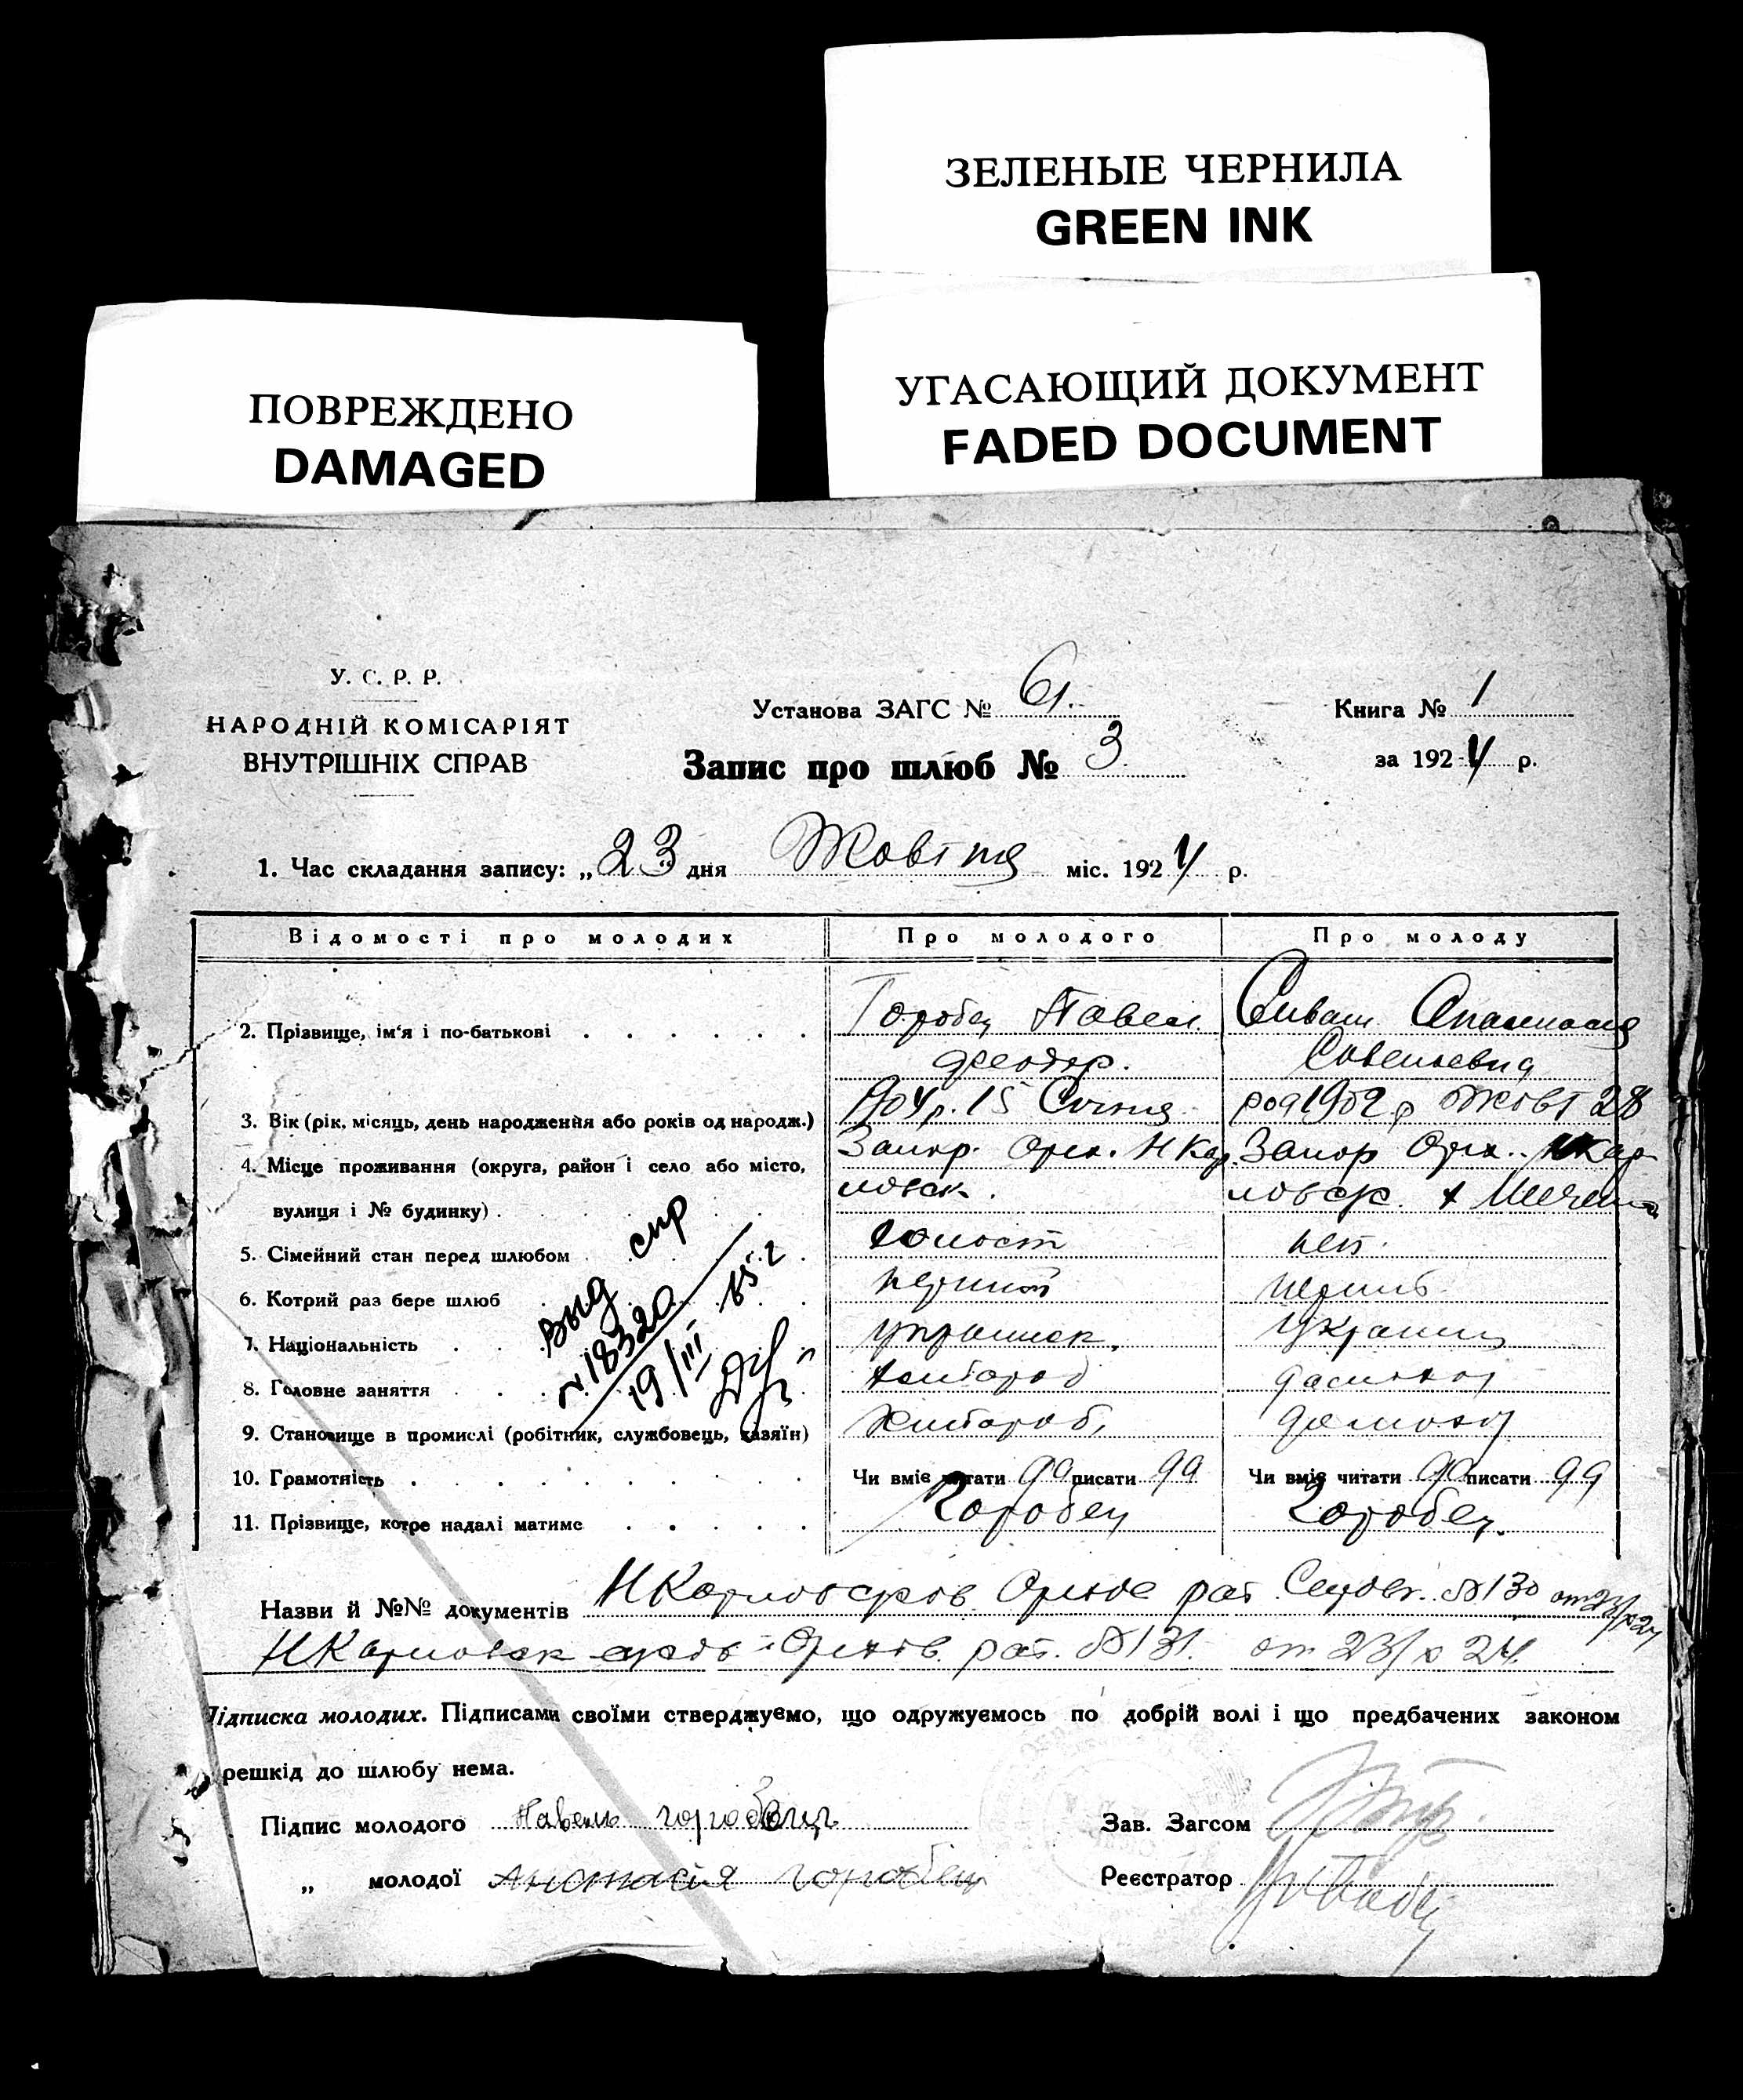 ЗЕЛЕНЫЕ ЧЕРНИЛА
GREEN INK
УГАСАЮЩИЙ ДОКУМЕНТ
FADED DOCUMENT
ПОВРЕЖДЕНО
DAMAGED
У. С. Р. Р.
НАРОДНІЙ КОМІСАРІЯТ
ВНУТРІШНІХ СПРАВ
Установа ЗАГС № 61.
Запис про шлюб № 3
Книга № 1
за 1924 р.
1. Час складання запису: „23 дня Жовтня міс. 1924 р.
Відомості про молодих Про молодого Про молоду
2. Прізвище, ім'я і по-батькові Горобец Павел Сиваш
Феодор. Савельевна
3. Вік (рік, місяць, день народження або років од народж.) 1904 р. 15 Січня род 1902 р Жовт 28
4. Місце проживання (округа, район і село або місто, Запор. Орех. Н Кар Запор Орех. Н Кар
вулиця і № будинку) ловск. ловск.
5. Сімейний стан перед шлюбом холост
6. Котрий раз бере шлюб перший перший
7. Національність украинец
8. Головне заняття хлібороб домохоз
9. Становище в промислі (робітник, службовець, хазяїн) хлібороб. домохоз
10. Грамотність Чи вміє читати да писати да Чи вміє читати да писати да
11. Прізвище, котре надалі матиме Горобец Горобец.
выд спр
№ 18320
19/III 85 г
Назви й №№ документів Н Карловск Орехов рай. №130 от 23/х 24
Н Карловск Орехов. рай. №131. от 23/х 24.
Підписка молодих. Підписами своїми стверджуємо, що одружуємось по добрій волі і що предбачених законом
решкід до шлюбу нема.
Підпис молодого Павель горобець
Зав. Загсом
„ молодої Анастасія горобец
Реєстратор